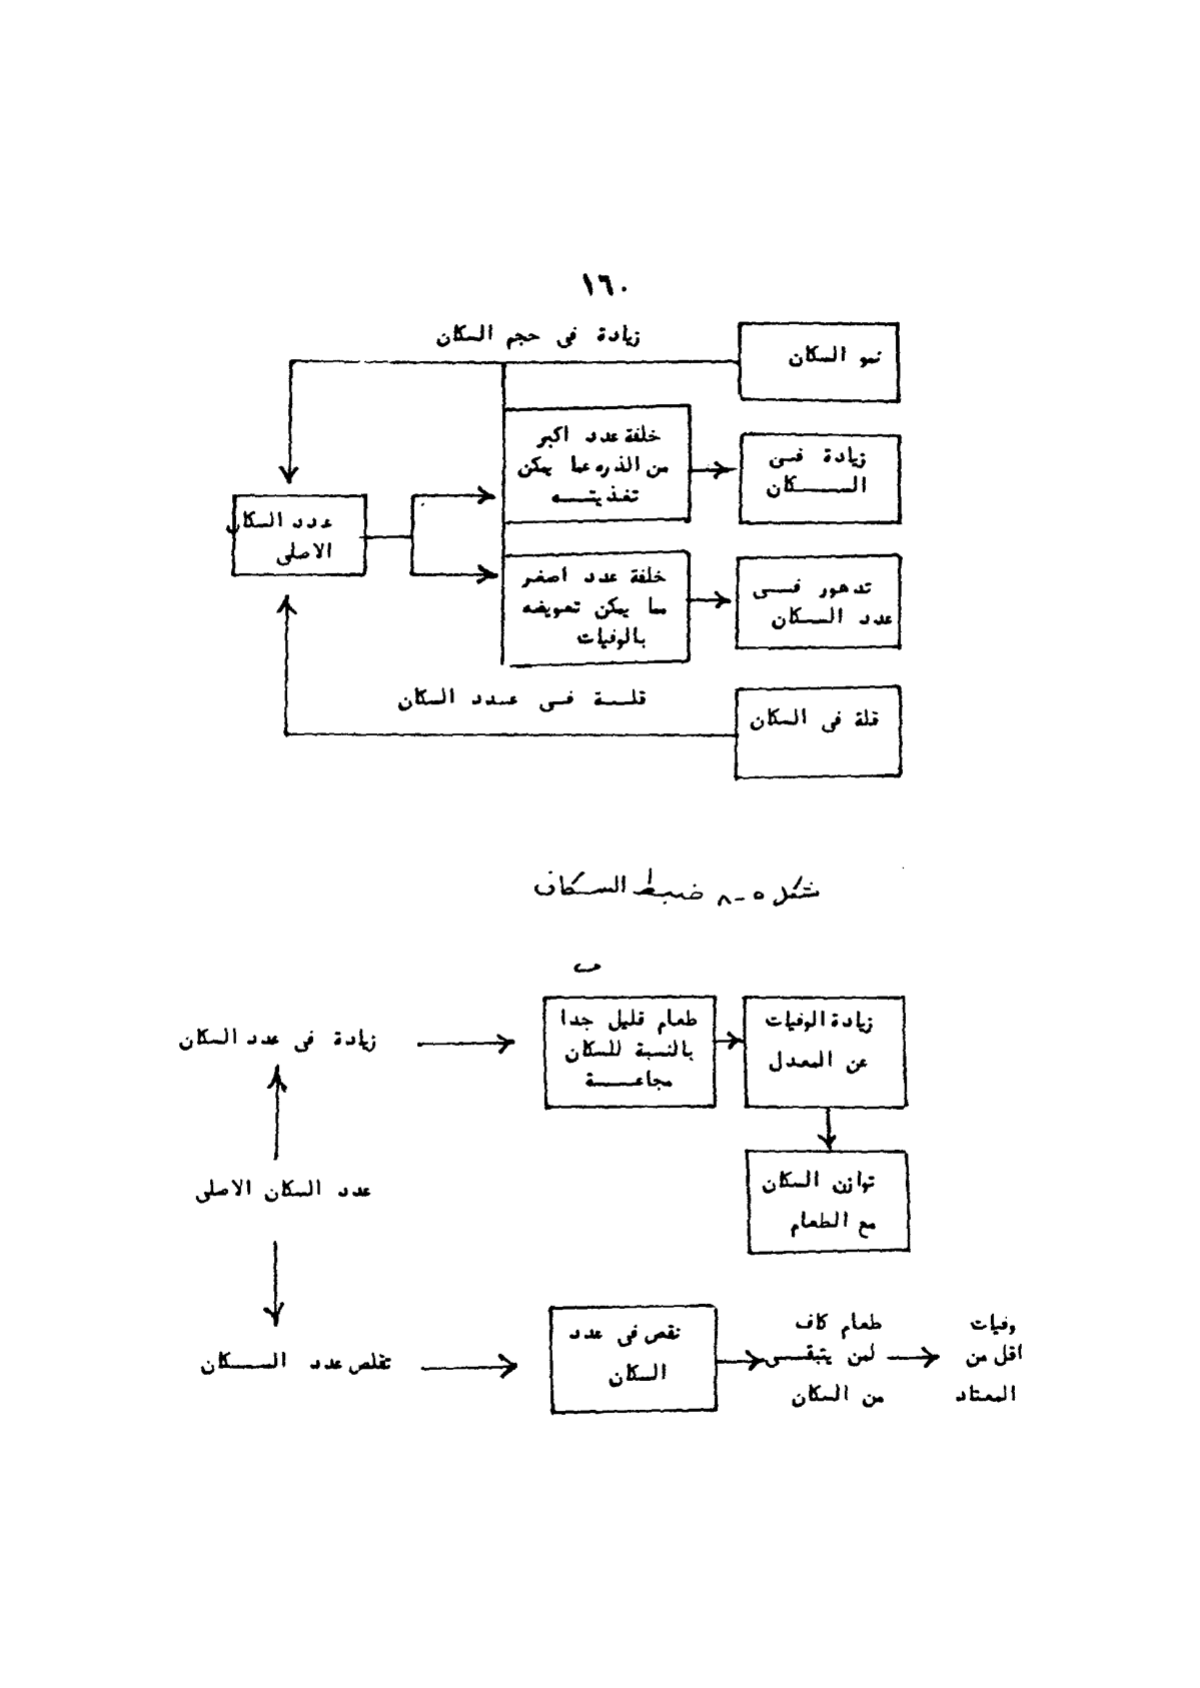 ١٦٠
زيادة فى حجم السكان
نمو السكان
خلفة عدد اكبر
من الذره عما يمكن
تغذيته
زيادة فى
السكان
عدد السكان
الاصلى
خلفة عدد اصغر
مما يمكن تعويضه
بالوفيات
تدهور فى
عدد السكان
قلة فى عدد السكان
قلة فى السكان
شكل ٥-٨ ضبط السكان
ب
زيادة فى عدد السكان
طعام قليل جدا
بالنسبة للسكان
مجاعة
زيادة الوفيات
عن المعدل
توازن السكان
مع الطعام
عدد السكان الاصلى
تقلص عدد السكان
نقص فى عدد
السكان
طعام كاف
لمن يتبقى
من السكان
وفيات
اقل من
المعتاد